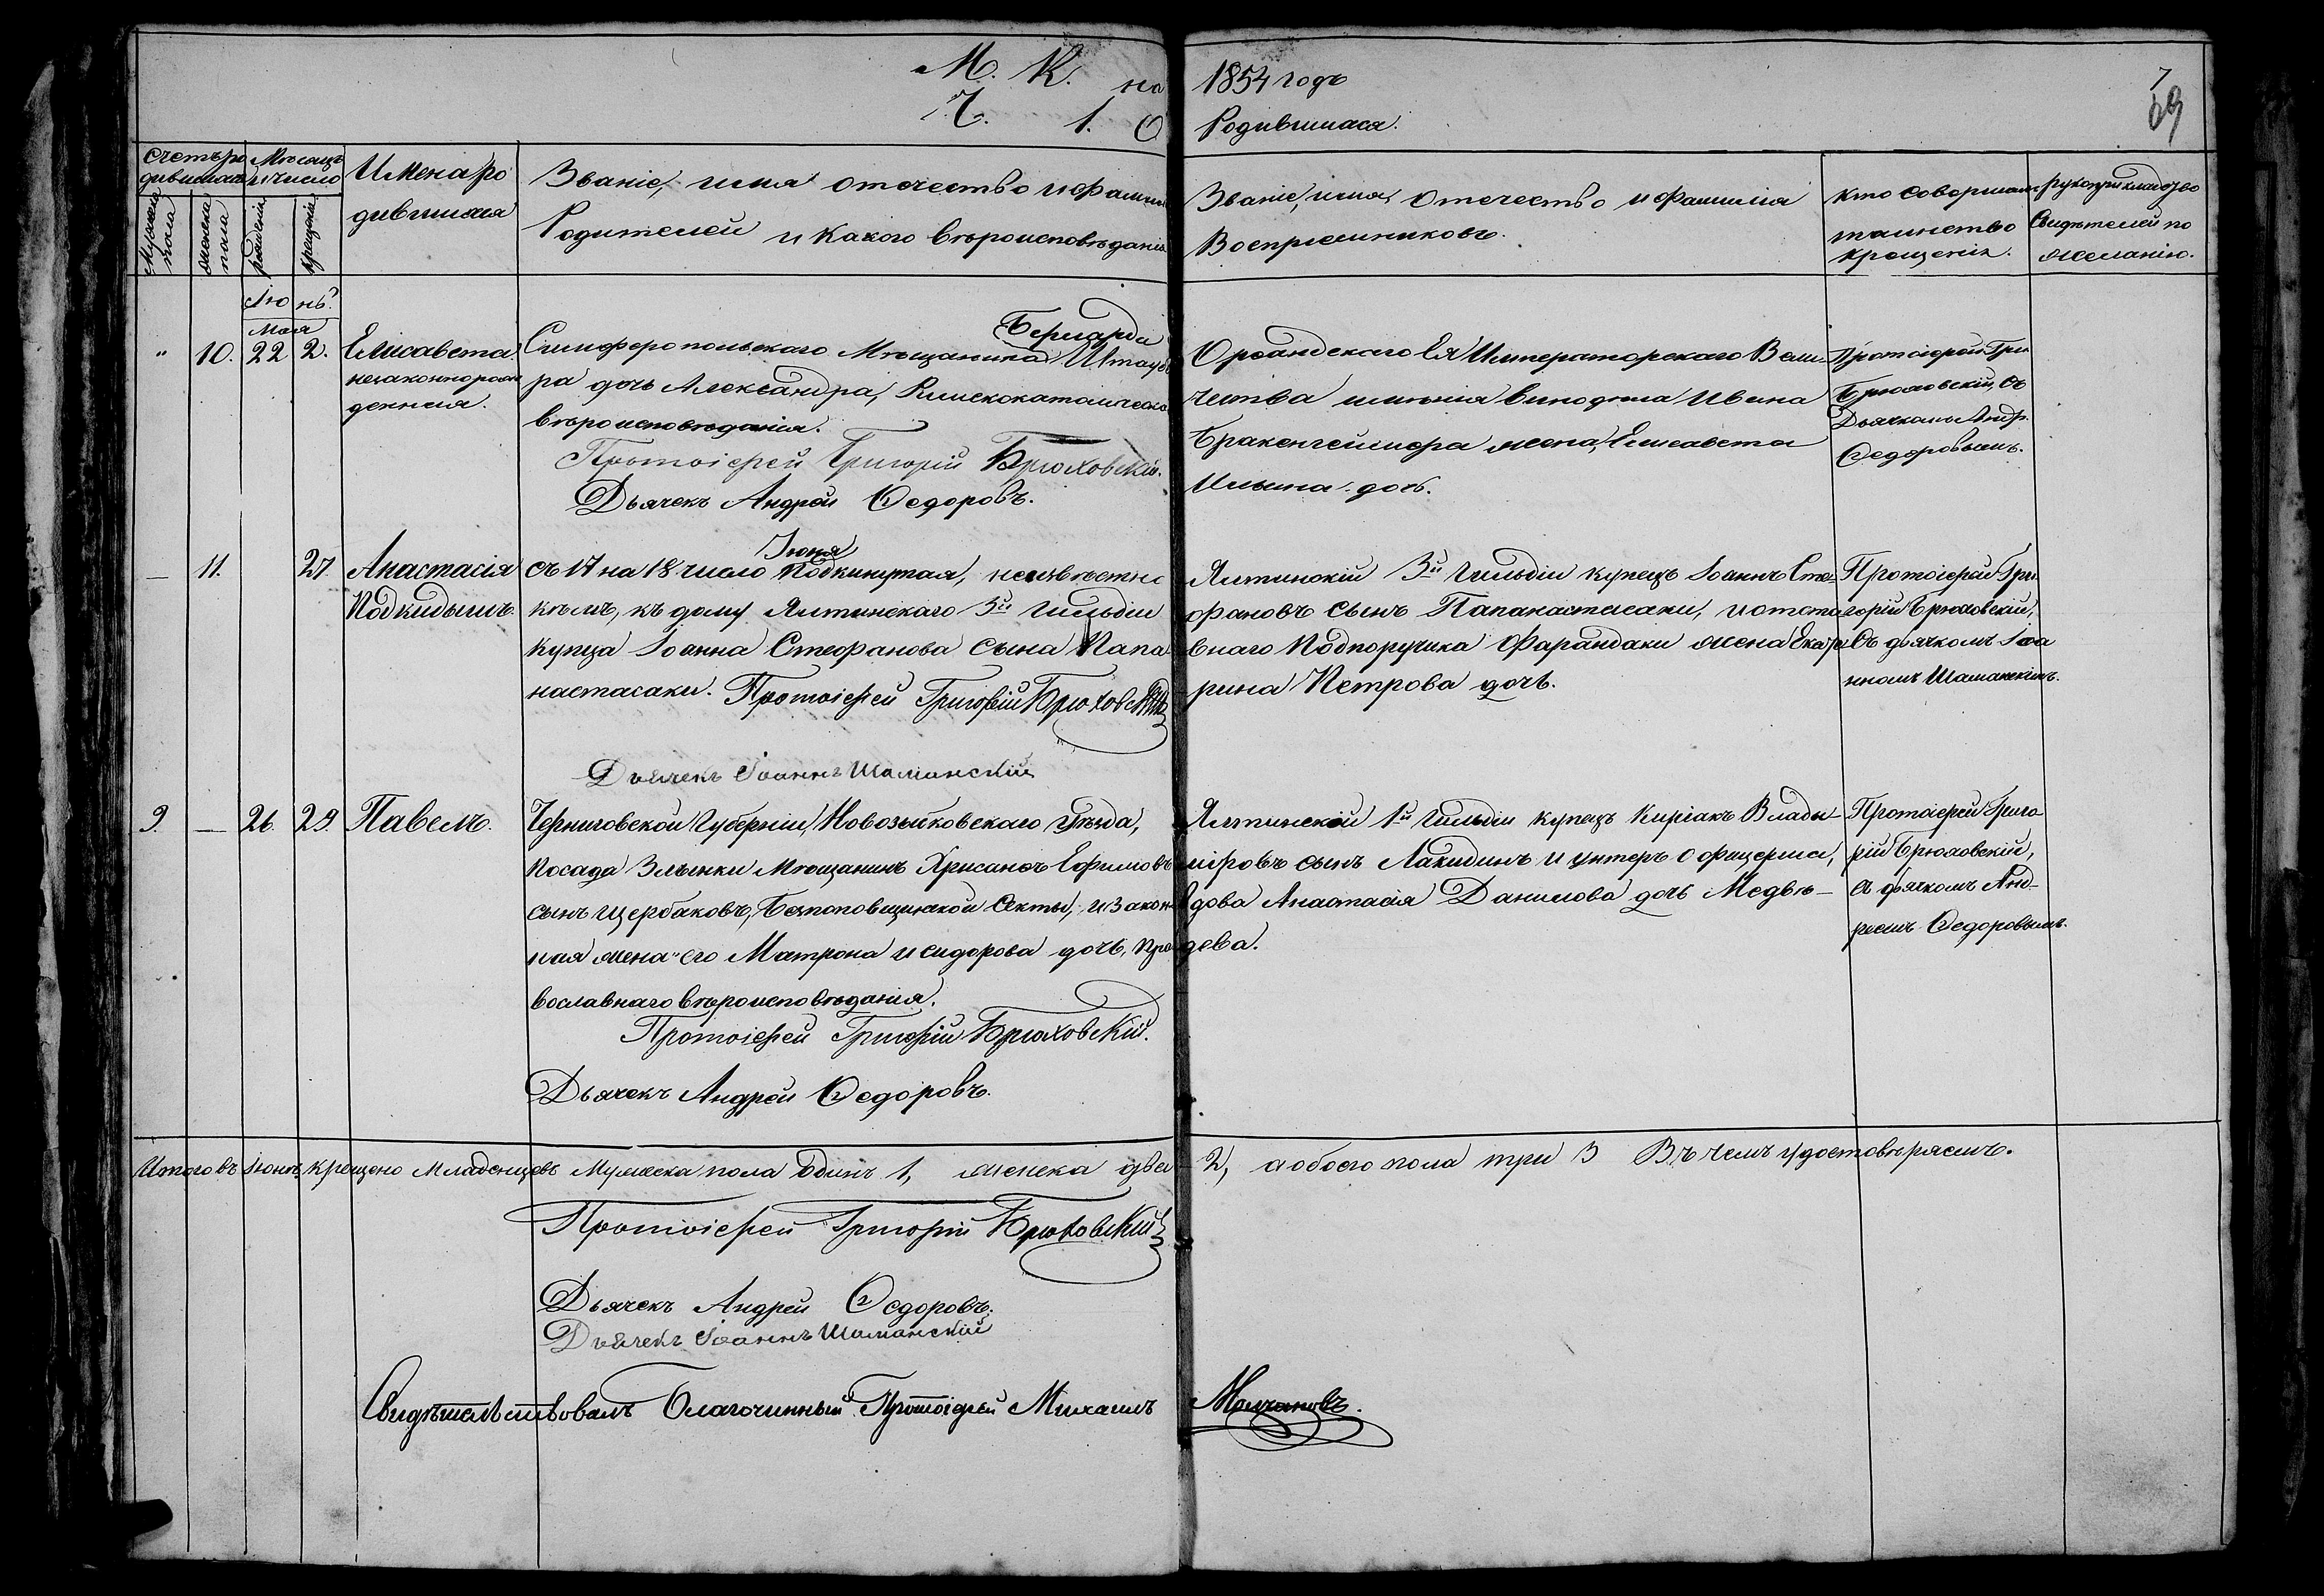 М. К. на 1854 годъ
Ч. 1. О Родившихся.
7
69
Счетъ ро
дившихся
Мужеска
пола
женска
пола
Мѣсяцъ
и число
рожденія
крещенія
Имена ро
дившихся
Званіе, имя отечество и фамилія
Родителей и какого вѣроисповѣданія
Званіе, имя, отечество и фамилія
Воспріемниковъ.
Кто совершалъ
таинство
крещенія.
рукоприкладство
Свидѣтелей по
желанію.
Іюнь
Мая
" 10. 22 2.
Елисавета.
незаконнорож
денная.
Бернарда
Симферопольскаго Мѣщанина
ра дочь Александра, Римскокатолическаго
вѣроисповѣданія.
Протоіерей Григорій Брюховскій.
Дьячекъ Андрей Ѳедоровъ.
Ореандскаго Ея Императорскаго Вели-
чества имѣнія винодѣла Ивана
Бракенгеймера жена, Елисавета
Ильина дочь.
Протоіерей Гри
Брюховскій, съ
Дьячкомъ Андр.
Ѳедоровымъ.
— 11. 27.
Анастасія
Подкидышъ.
Іюня
съ 17 на 18 число подкинутая, неизвѣстно
кѣмъ, къ дому Ялтинскаго 3й гильдіи
купца Іоанна Стефанова сына Папа
настасаки. Протоіерей Григорій Брюховскій
Дьячекъ Іоаннъ Шаманскій
Ялтинскій 3й гильдіи купецъ Іоаннъ Сте-
фановъ сынъ Папанастасаки, и отста
внаго Подпоручика Фарандаки жена Екате
рина Петрова дочь.
Протоіерей Гри
горій Брюховскій,
Съ дьячкомъ Іоа
нномъ Шаманскимъ.
9. — 26. 29.
Павелъ.
Черниговской Губерніи, Новозыбковскаго уѣзда,
посада Злынки Мѣщанинъ Хрисанѳъ Ефимовъ
сынъ Щербаковъ, Безпоповщинской секты, и закон
ная жена его Матрона Исидорова дочь, пра
вославнаго вѣроисповѣданія.
Протоіерей Григорій Брюховскій.
Дьячекъ Андрей Ѳедоровъ.
Ялтинской 1й гильдіи купецъ Киріакъ Влады-
міровъ сынъ Лакидинъ и унтеръ офицерша,
вдова Анастасія Данилова дочь Медвѣ-
дева.
Протоіерей Григо
рій Брюховскій,
съ дьячкомъ Анд-
реемъ Ѳедоровымъ.
Итого въ Іюнѣ крещено младенцевъ Мужеска пола одинъ 1, женска два 2, а обоего пола три 3 Въ чемъ удостовѣряемъ.
Протоіерей Григорій Брюховскій
Дьячекъ Андрей Ѳедоровъ.
Дьячекъ Іоаннъ Шаманскій
Свидѣтельствовалъ Благочинный Протоіерей Михаилъ Молчановъ.